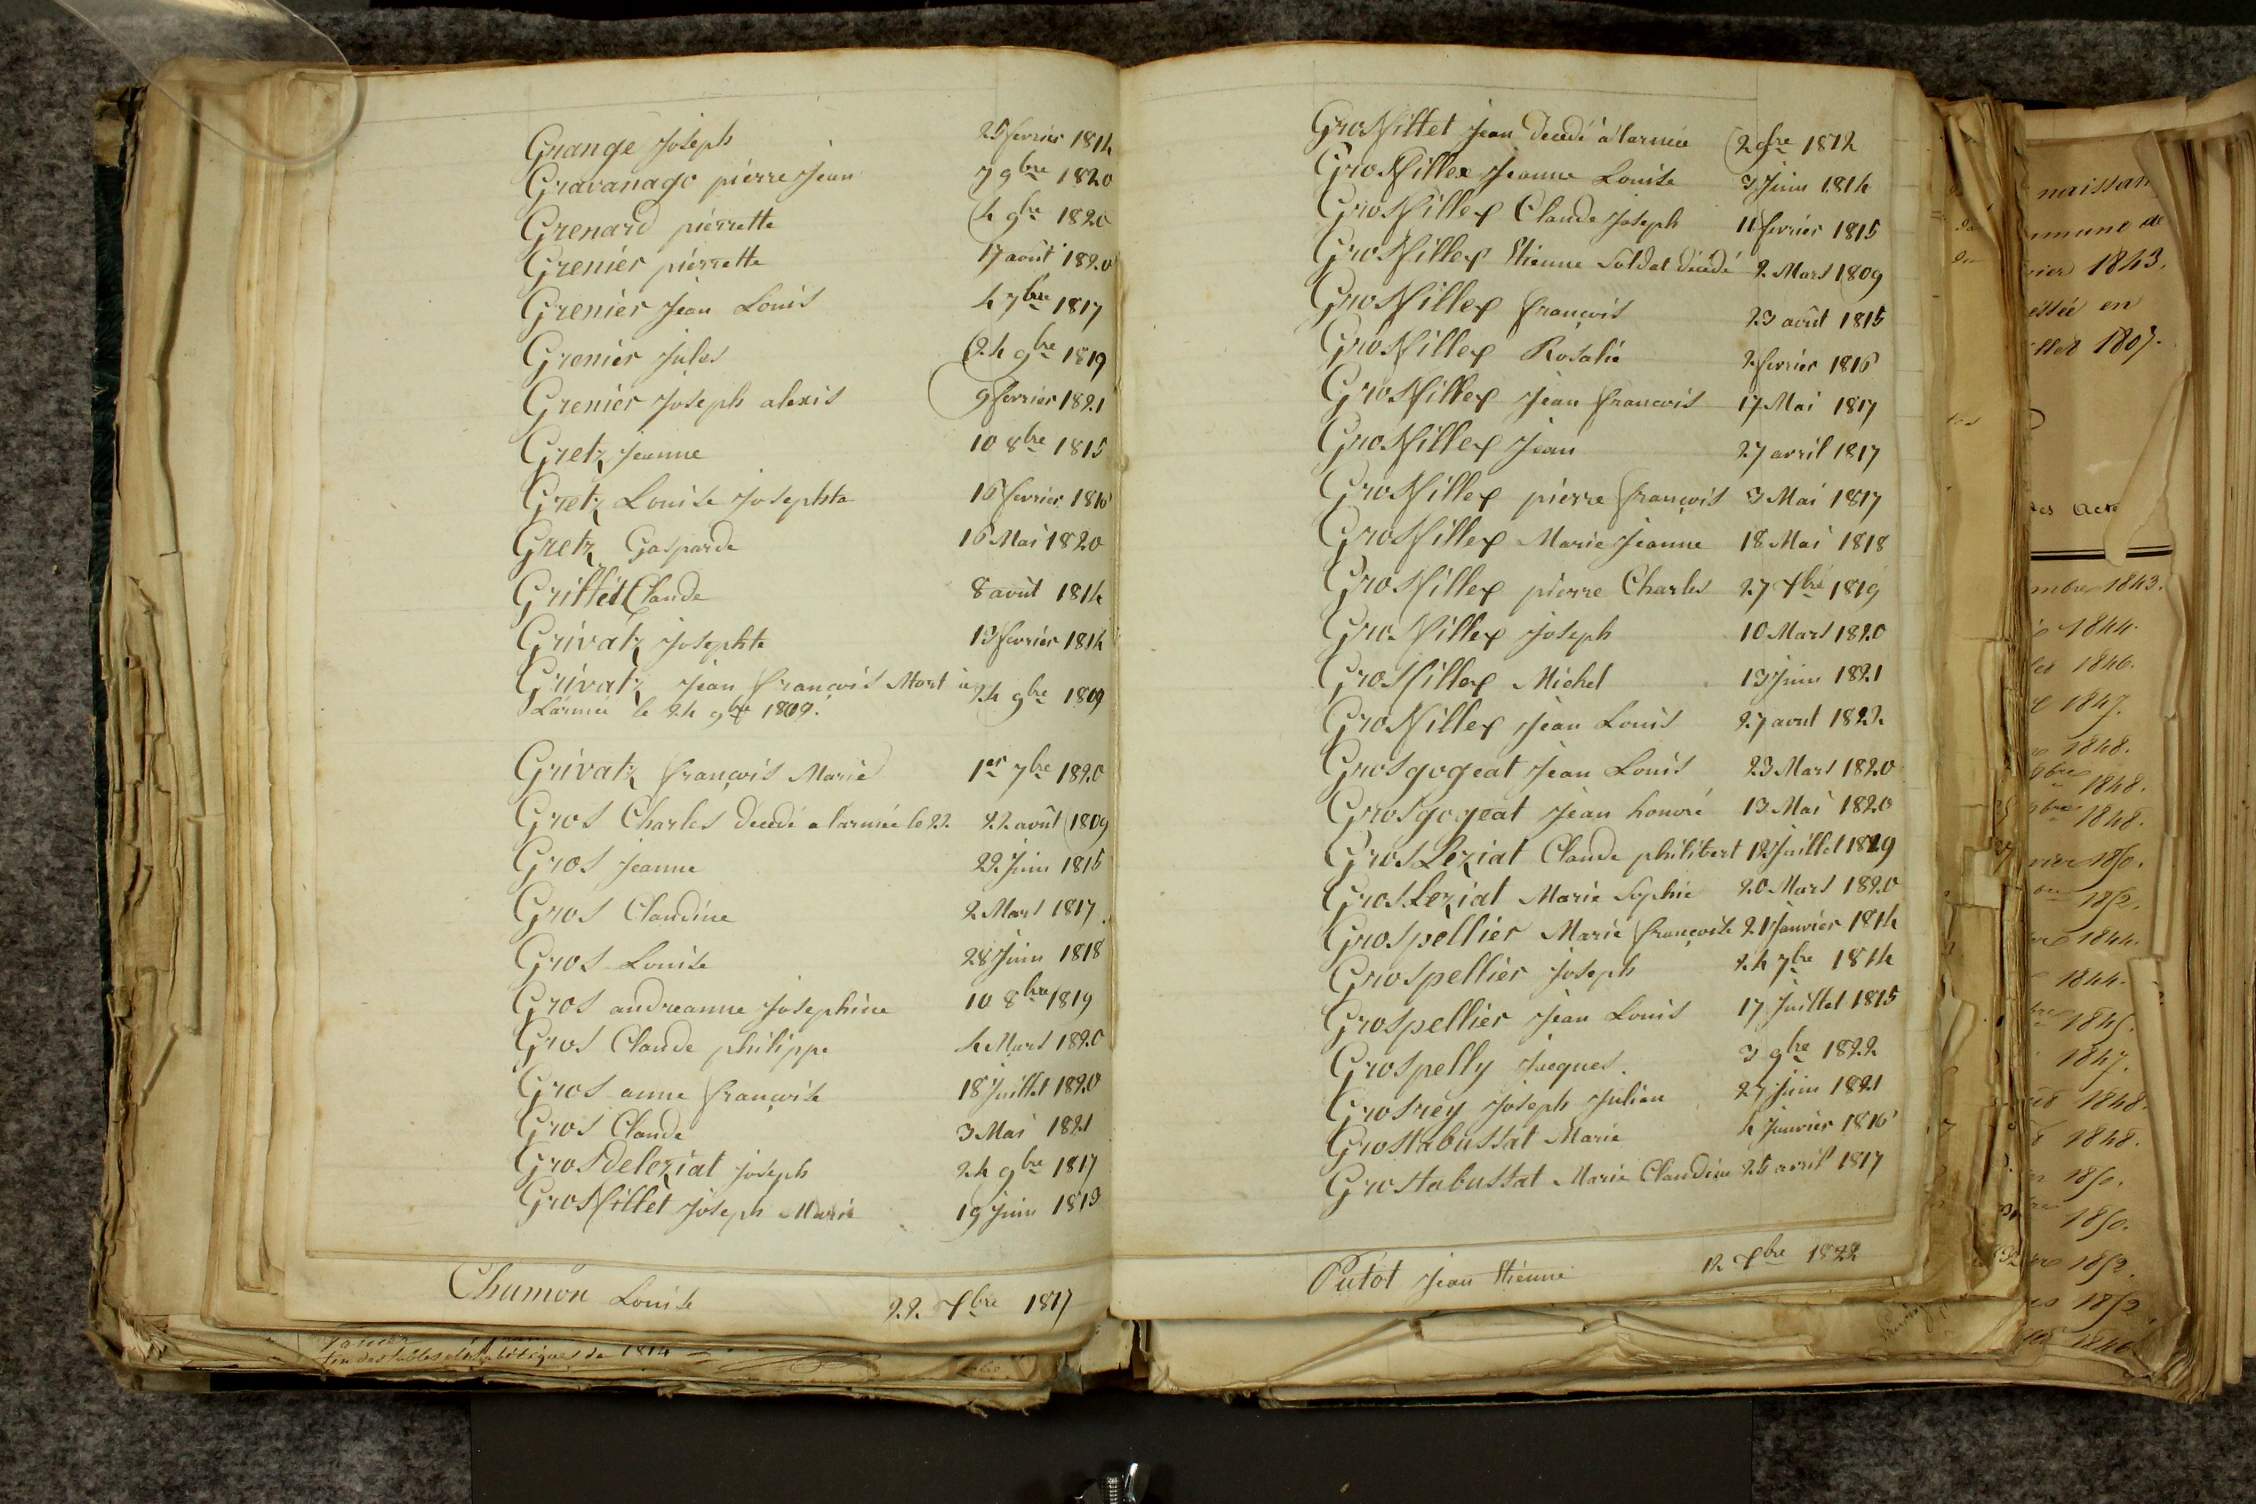 Grange Joseph 25 fevrier 1814
Gravanago pierre Jean 7 9bre 1820
Grenard pierrette 4 9bre 1820
Grenier pierrette 17 août 1820
Grenier Jean Louis 4 7bre 1817
Grenier Jules 24 9bre 1819
Grenier Joseph alexis 9 fevrier 1821
Gretz Jeanne 10 8bre 1815
Gretz Louise Josephte 16 fevrier 1816
Gretz Gasparde 16 Mai 1820
Griffet Claude 8 août 1814
Grivatz Josephte 13 fevrier 1814
Grivatz Jean françois Mort à 24 9bre 1809
L'armée le 24 9bre 1809.
Grivatz françois Marie 1er 7bre 1820
Gros Charles décedé a l'armée le 22 22 août 1809
Gros Jeanne 22 Juin 1815
Gros Claudine 2 Mars 1817
Gros Louise 28 Juin 1818
Gros andreanne Josephine 10 8bre 1819
Gros Claude philippe 4 Mars 1820
Gros anne françoise 18 Juillet 1820
Gros Claude 3 Mai 1821
Gros deleziat Joseph 24 9bre 1817
Grosfillet Joseph Marie 19 Juin 1813
Chumon Louise 22 Xbre 1817
Grosfillet Jean decedé à l'armée 2 9bre 1812
Grosfillex Jeanne Louise 3 Juin 1814
Grosfillex Claude Joseph 11 fevrier 1815
Grosfillex Etienne Soldat décédé 2 Mars 1809
Grosfillex françois 23 août 1815
Grosfillex Rosalie 2 fevrier 1816
Grosfillex Jean françois 17 Mai 1817
Grosfillex Jean 27 avril 1817
Grosfillex pierre françois 3 Mai 1817
Grosfillex Marie Jeanne 18 Mai 1818
Grosfillex pierre Charles 27 Xbre 1819
Grosfillex Joseph 10 Mars 1820
Grosfillex Michel 13 Juin 1821
Grosfillex Jean Louis 27 aout 1822
Grosgogeat Jean Louis 23 Mars 1820
Grosgogeat Jean honoré 13 Mai 1820
Gros Leziat Claude philibert 12 Juillet 1819
Gros Leziat Marie Sophie 20 Mars 1820
Grospellier Marie françoise 21 Janvier 1814
Grospellier Joseph 24 7bre 1814
Grospellier Jean Louis 17 Juillet 1815
Grospelly Jacques. 3 9bre 1822
Grosrey Joseph Julien 27 Juin 1821
Grostabussat Marie 4 Janvier 1816
Grostabussat Marie Claudine 25 avril 1817
Putot Jean Etienne 12 Xbre 1822
naissan
mmune de
1843.
en
1807.
1843.
1844.
1846.
1847.
1848.
9bre 1848.
9bre 1848.
1850.
1852.
1844.
1844.
1845.
1847.
1848.
1848.
1850.
1850.
1852.
1852.
1846